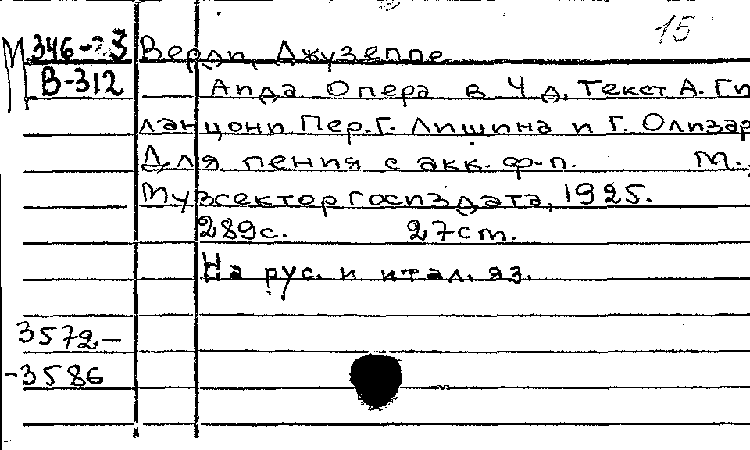 15
М 346-23 Верди, Джузеппе
В-312 Аида Опера в 4 д. Текст А. Ги
ланцони Пер. Г. Лишина и Г. Олизар
Для пения с акк. ф-п. М.,
Музсектор Госиздата, 1925.
289с. 27см.
На рус. и итал. яз.
3572-
-3586